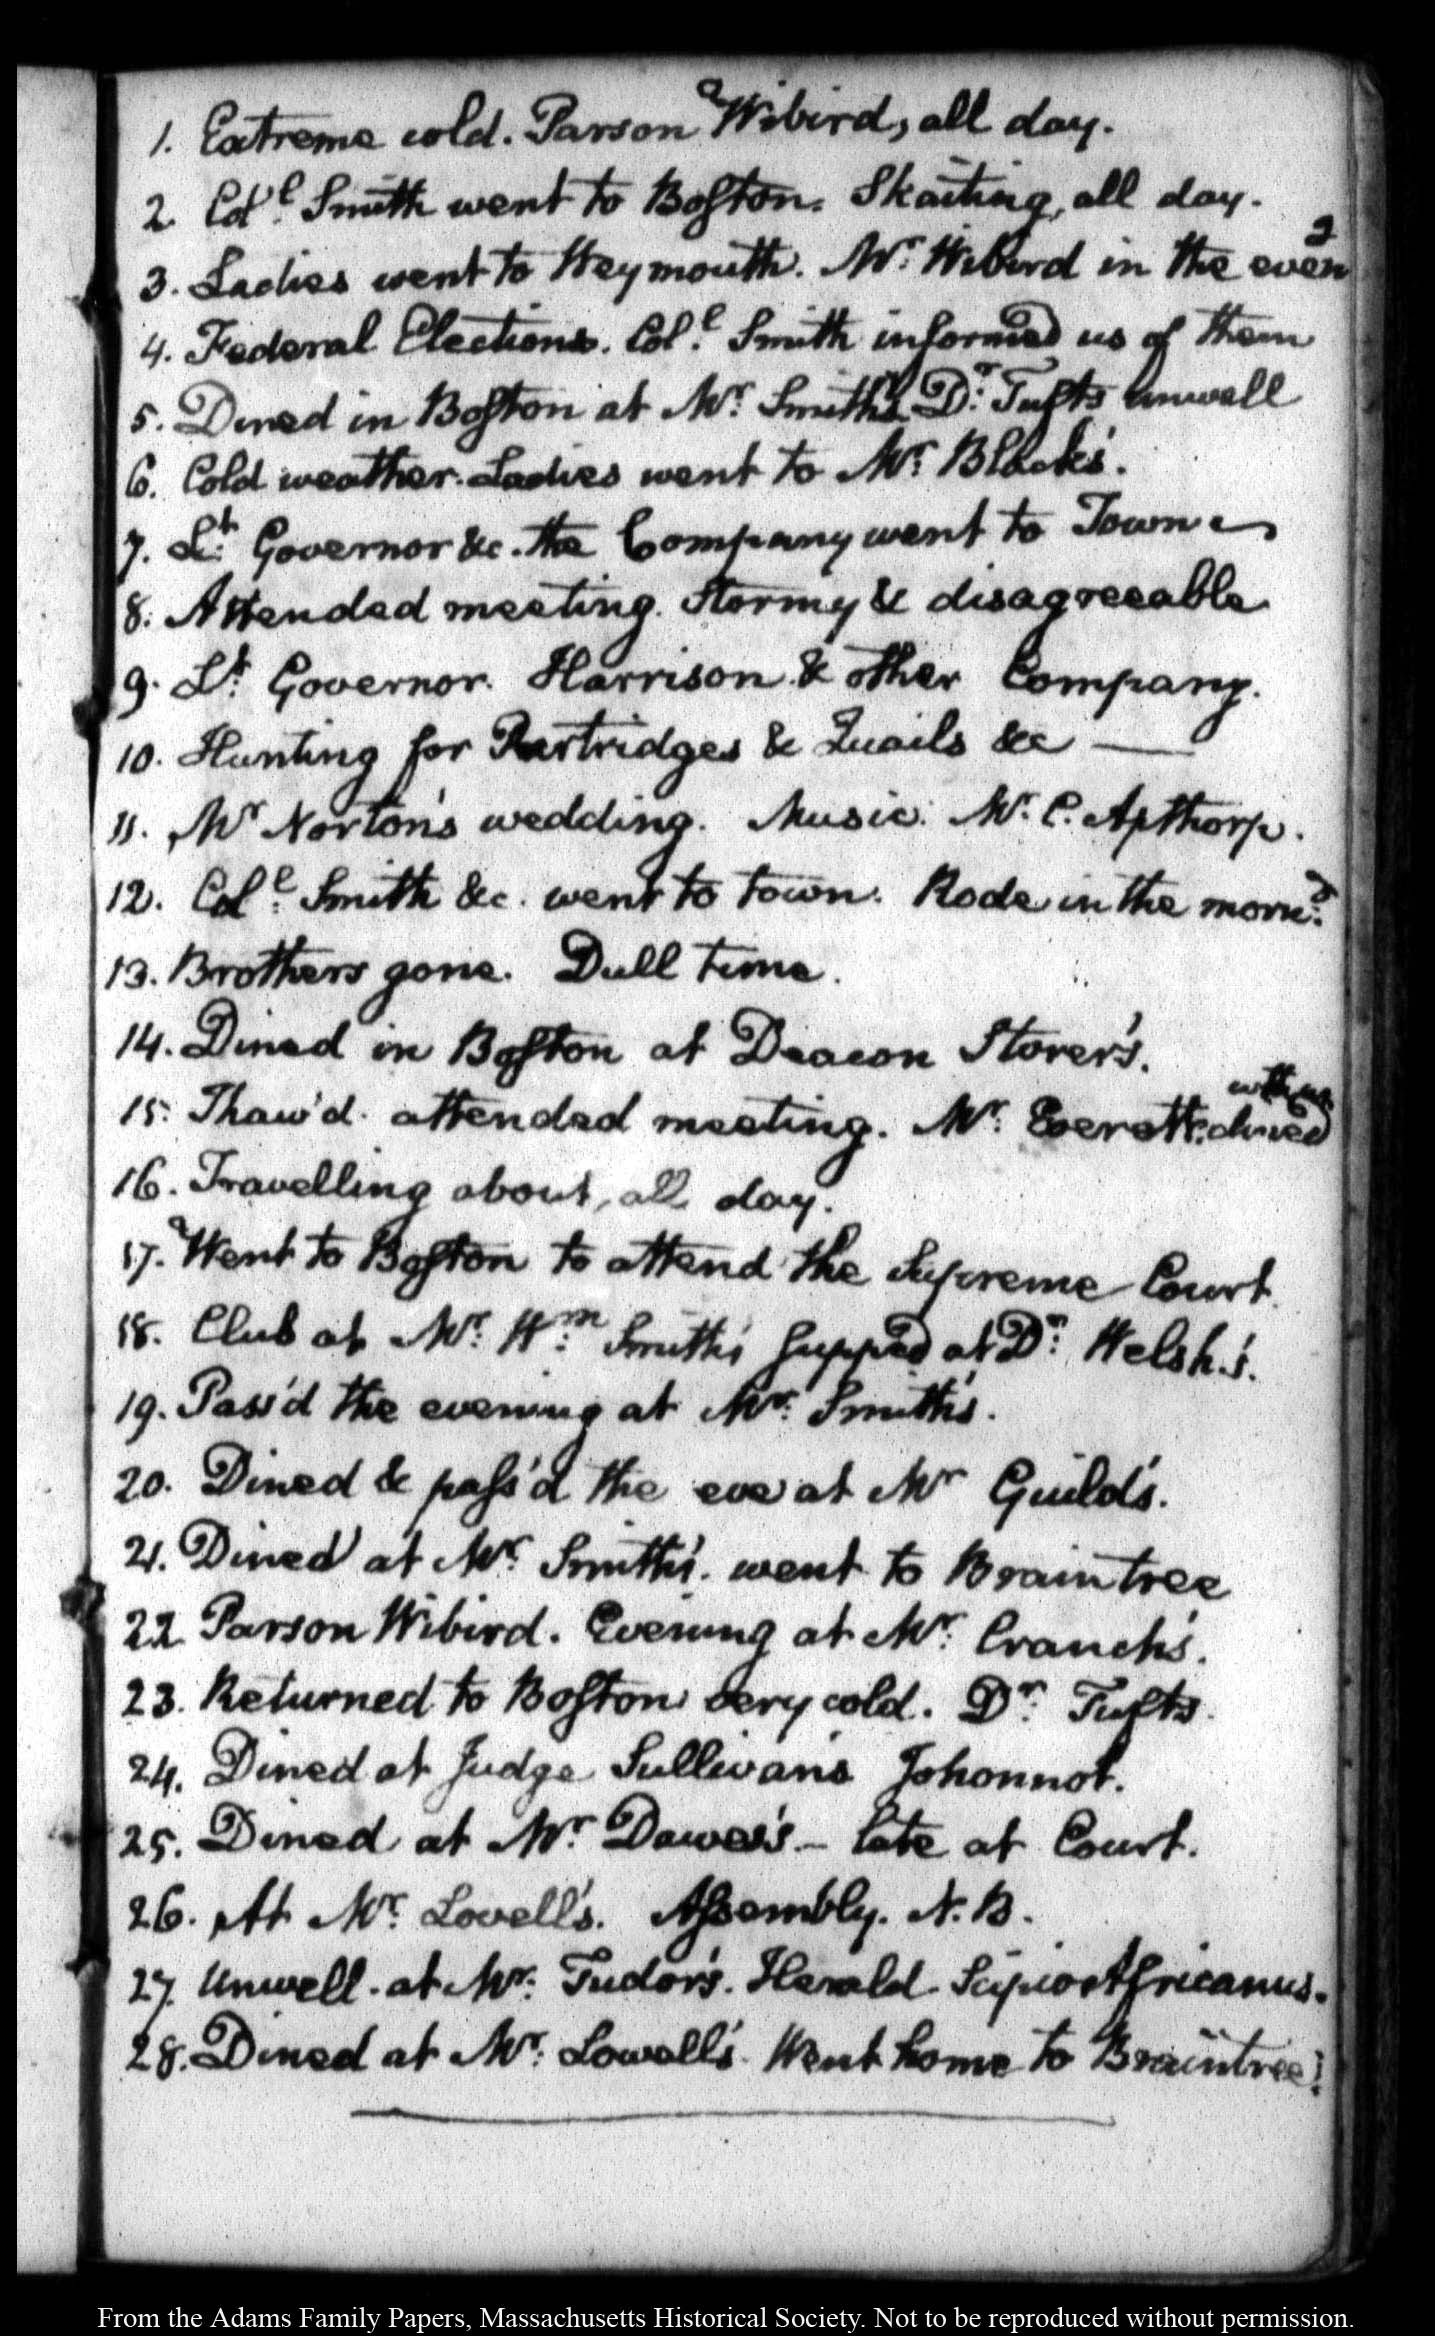 1. Extreme cold. Parson Wibird, all day.
2. Col.l Smith went to Boston. Skaiting, all day.
3. Ladies went to Weymouth. Mr. Wibird in the eveng
4. Federal Elections. Col.l Smith informed us of them
5. Dined in Boston at Mr. Smith's Dr. Tufts unwell
6. Cold weather. Ladies went to Mr. Black's.
7. Lt. Governor &c. the Company went to Town
8. Attended meeting. Stormy & disagreeable
9. Lt. Governor. Harrison & other Company.
10. Hunting for Partridges & Quails &c —
11. Mr Norton's wedding. Music. Mr. C. Apthorp.
12. Col.l Smith &c. went to town. Rode in the morn.g
13. Brothers gone. Dull time.
14. Dined in Boston at Deacon Storer's.
15. Thaw'd. attended meeting. Mr. Everett. dined with us
16. Travelling about, all day.
17. Went to Boston to attend the Supreme Court.
18. Club at Mr. Wm. Smith's supped at Dr. Welsh's.
19. Pass'd the evening at Mr. Smith's.
20. Dined & pass'd the eve at Mr Guild's.
21. Dined at Mr. Smith's. went to Braintree
22. Parson Wibird. Evening at Mr. Cranch's.
23. Returned to Boston very cold. Dr. Tufts.
24. Dined at Judge Sullivan's Johonnot.
25. Dined at Mr. Dawes's — late at Court.
26. At Mr. Lovell's. Assembly. N.B.
27. Unwell. at Mr. Tudor's. Herald. Scipio Africanus.
28. Dined at Mr. Lowell's. Went home to Braintree.
From the Adams Family Papers, Massachusetts Historical Society. Not to be reproduced without permission.